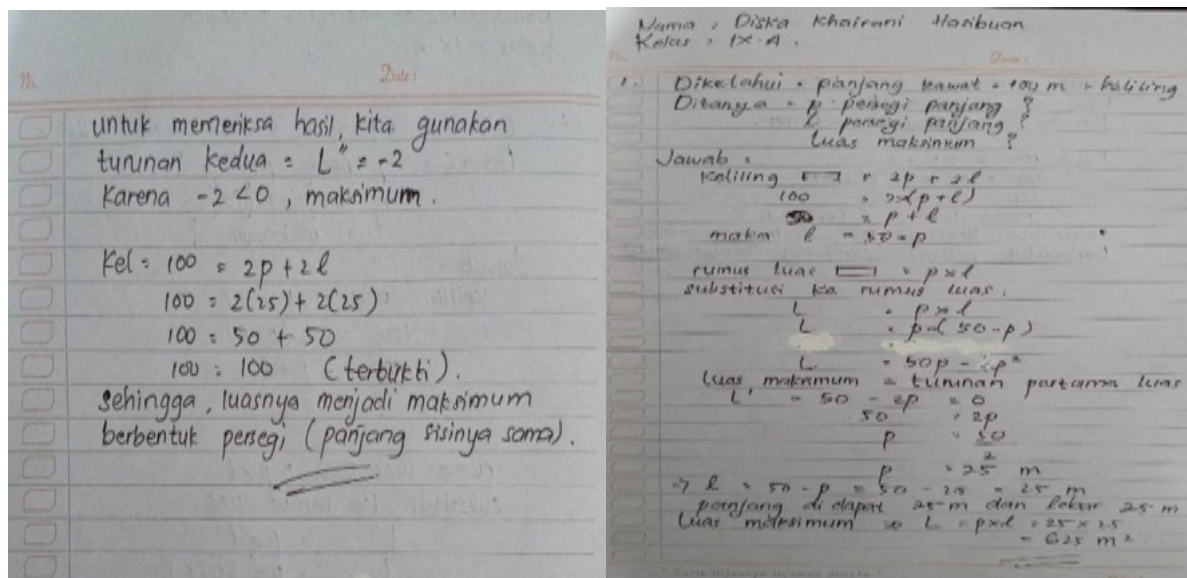 No. Date:
untuk memeriksa hasil, kita gunakan
turunan kedua = L" = -2
Karena -2 < 0, maksimum.
Kel = 100 = 2p + 2l
100 = 2(25) + 2(25)
100 = 50 + 50
100 = 100 (terbukti).
sehingga, luasnya menjadi maksimum
berbentuk persegi (panjang sisinya sama).
Nama : Diska Khairani Hasibuan
Kelas : IX-A.
No. Date:
1. Diketahui = panjang kawat = 100 m = keliling
Ditanya = p persegi panjang ?
l persegi panjang ?
luas maksimum ?
Jawab :
Keliling = 2p + 2l
100 = 2(p+l)
50 = p + l
maka l = 50 - p
rumus luas = p x l
substitusi ke rumus luas.
L = p x l
L = p(50-p)
L = 50p - p²
luas maksimum = turunan pertama luas
L' = 50 - 2p = 0
50 = 2p
p = 50
2
p = 25 m
→ l = 50 - p = 50 - 25 = 25 m
panjang di dapat 25 m dan lebar 25 m
luas maksimum L = p x l = 25 x 25
= 625 m²